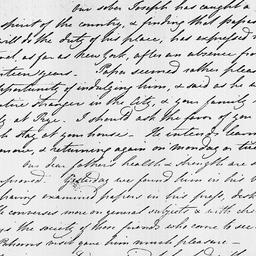 Our sober Joseph has caught a
spirit of the country, & finding that papas
will do the duty of his place, has expressed a
, as far as New York, after an absence from
teen years. Papa seemed rather pleased
opportunity of indulging him, & said as he a
entire stranger in the City, & your family
ly at Page. I should ask the favor of you
to stay at your house – He intends leavin
morrow, & returning again on monday or tues
Our dear fathers health & strength are
improved. Yesterday we found him in his
having examined papers in his press, desk
& converses more on general subjects & with che
ys the society of those friends who come to see
visit gave him much pleasure –